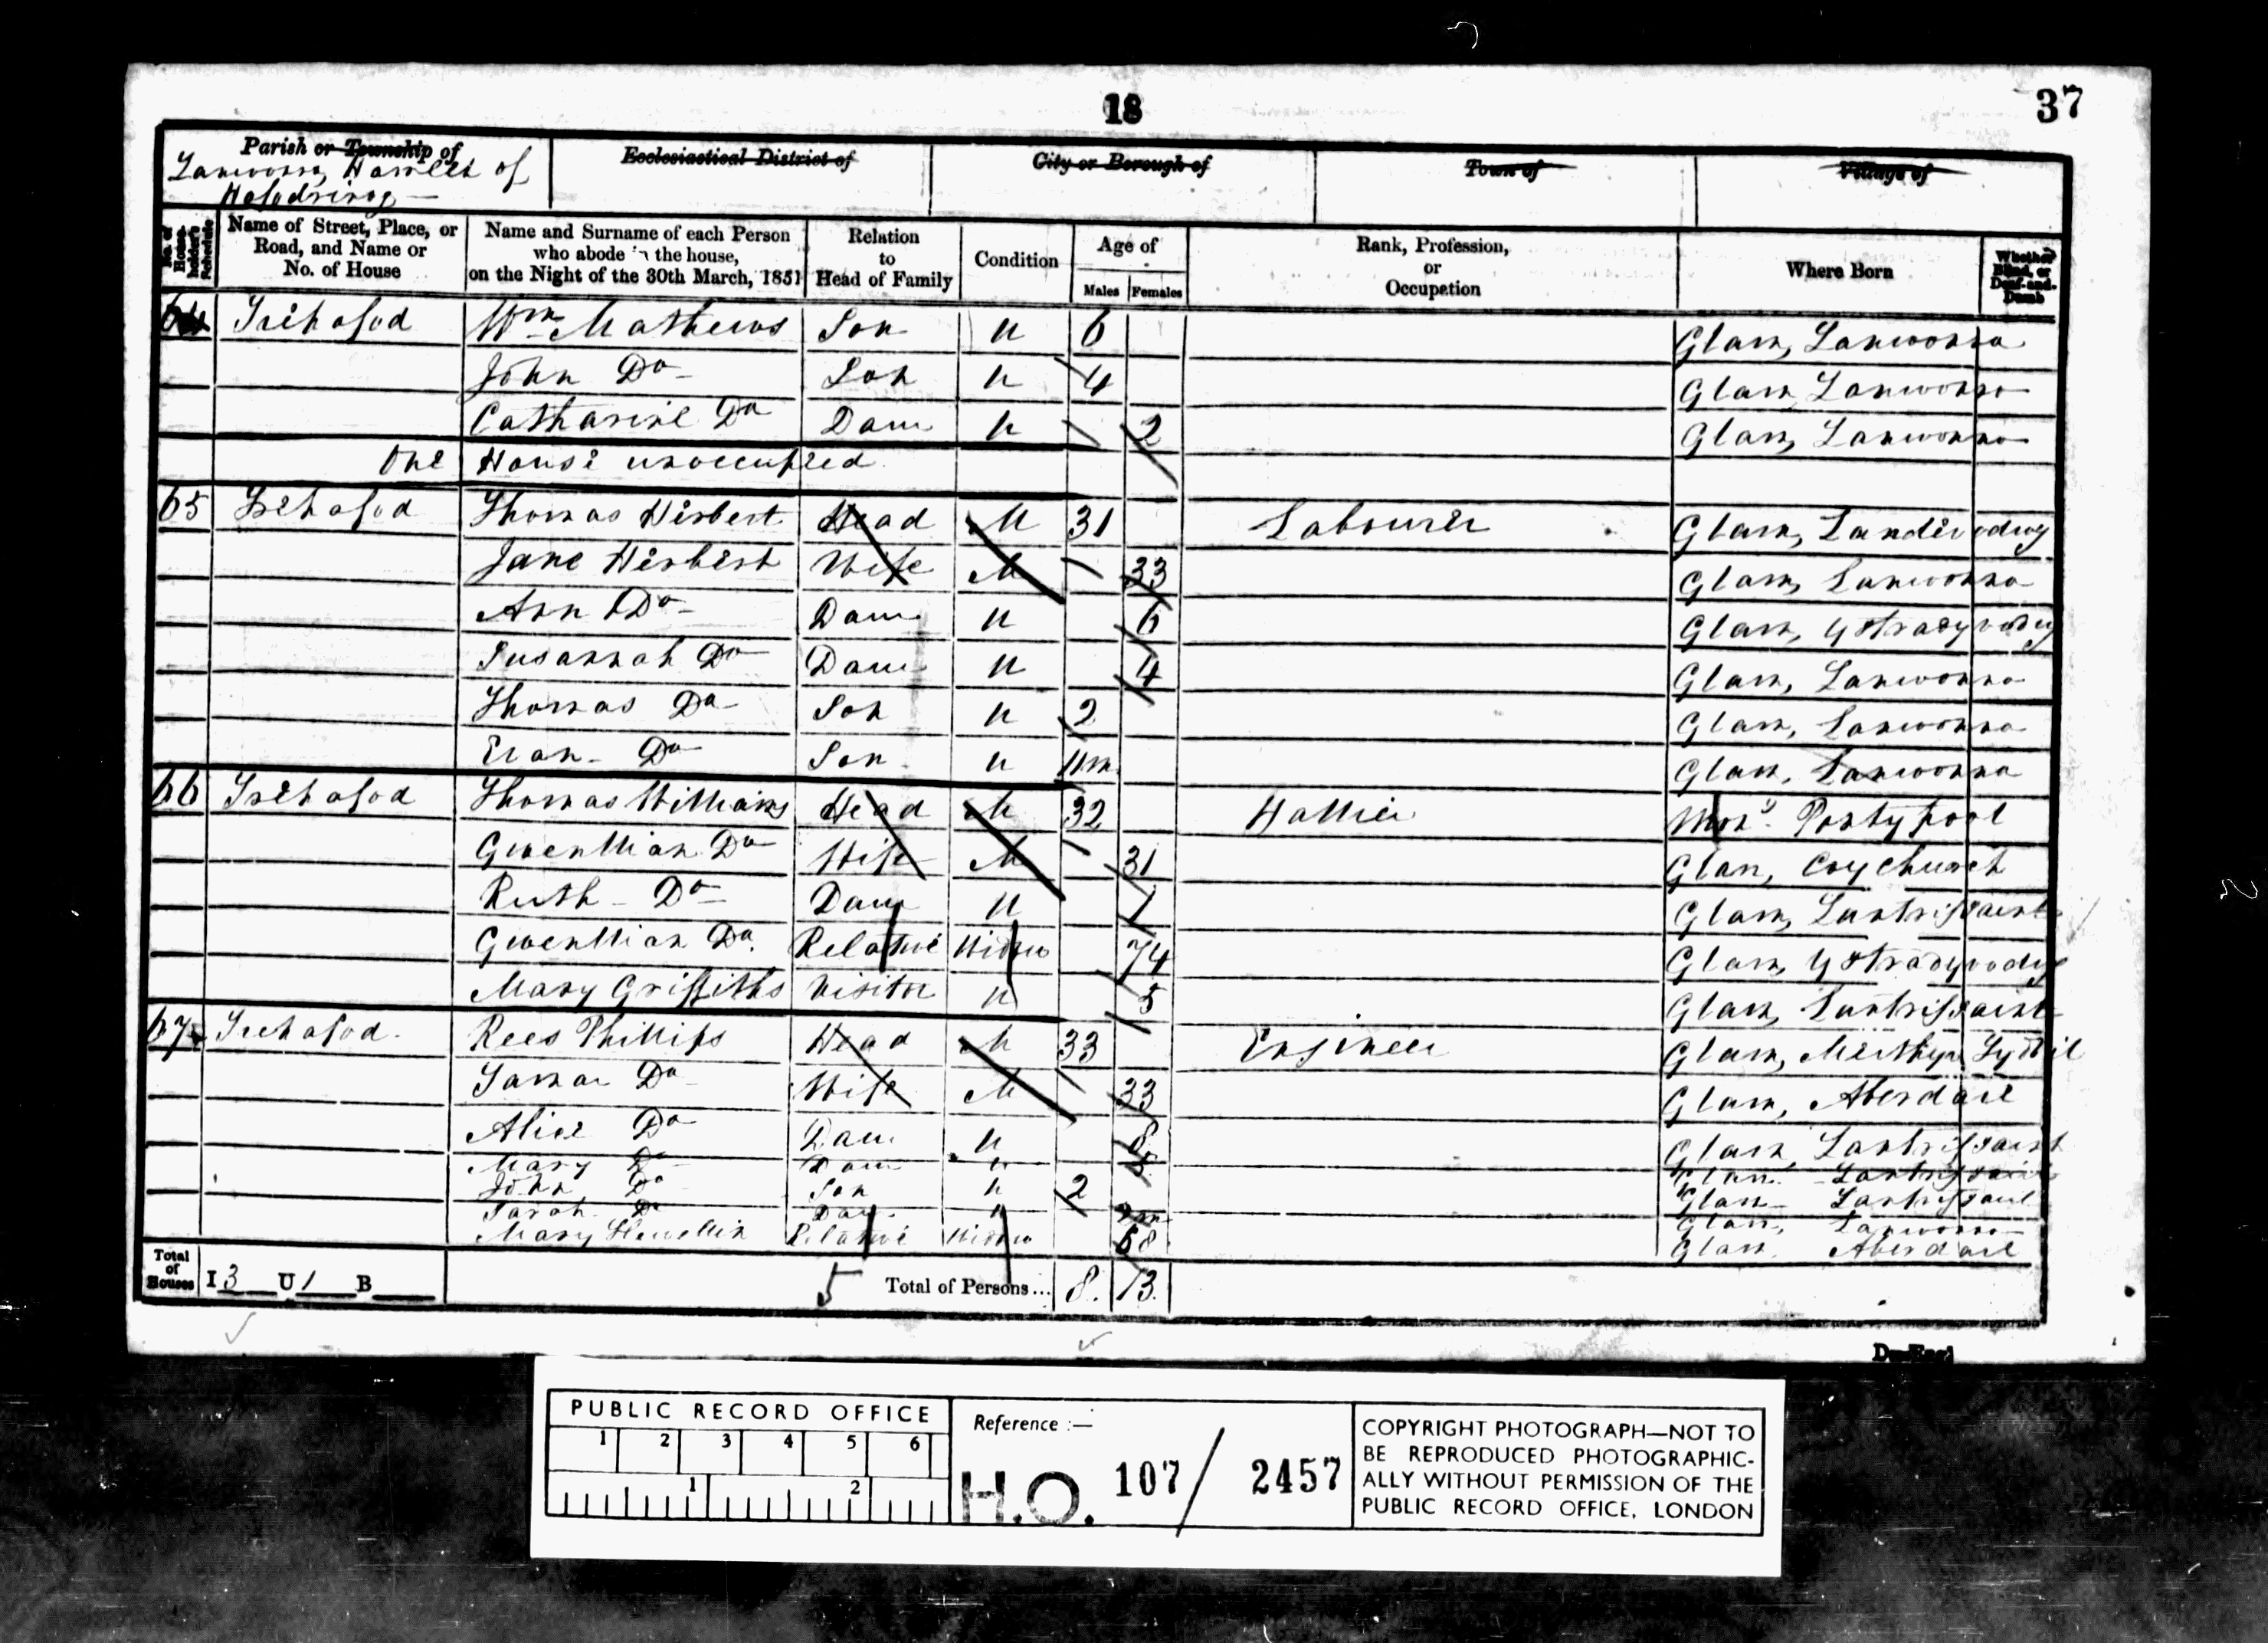 18
37
Parish or Township of
Lanwonno, Hamlet of
Hafodrinog
Ecclesiastical District of
City or Borough of
Town of
Village of
No. of Householder's Schedule
Name of Street, Place, or Road, and Name or No. of House
Name and Surname of each Person who abode in the house, on the Night of the 30th March, 1851
Relation to Head of Family
Condition
Age of
Males Females
Rank, Profession, or Occupation
Where Born
Whether Blind, or Deaf-and-Dumb
64 Trehafod Wm Mathews Son U 6 Glam, Lanwonno
John Do Son U 4 Glam, Lanwonno
Catharine Do Daur U 2 Glam, Lanwonno
One House unoccupied
65 Trehafod Thomas Herbert Head M 31 Labourer Glam, Landevodwg
Jane Herbert Wife M 33 Glam, Lanwonno
Ann Do Daur U 6 Glam, Ystradyvodwg
Susannah Do Daur U 4 Glam, Lanwonno
Thomas Do Son U 2 Glam, Lanwonno
Evan Do Son U 11m Glam, Lanwonno
66 Trehafod Thomas Williams Head M 32 Hallier Mon. Pontypool
Gwenllian Do Wife M 31 Glam, Coychurch
Ruth Do Daur U 1 Glam, Lantrissaint
Gwenllian Do Relative Widow 74 Glam, Ystradyvodwg
Mary Griffiths Visitor U 5 Glam, Lantrissaint
67 Trehafod Rees Phillips Head M 33 Engineer Glam, Merthyr Tydvil
Tamar Do Wife M 33 Glam, Aberdare
Alice Do Daur U Glam, Lantrissaint
Mary Do Daur U Glam. Lantrissaint
John Do Son U 2 Glam Lantrissaint
Sarah Do Daur U Glam, Lanwonno
Mary Llewellin Relative Widow 68 Glam. Aberdare
Total of Houses I 3 U 1 B
5 Total of Persons... 8. 13.
PUBLIC RECORD OFFICE
1 2 3 4 5 6
1 2
Reference :—
H.O. 107/ 2457
COPYRIGHT PHOTOGRAPH—NOT TO
BE REPRODUCED PHOTOGRAPHIC-
ALLY WITHOUT PERMISSION OF THE
PUBLIC RECORD OFFICE, LONDON